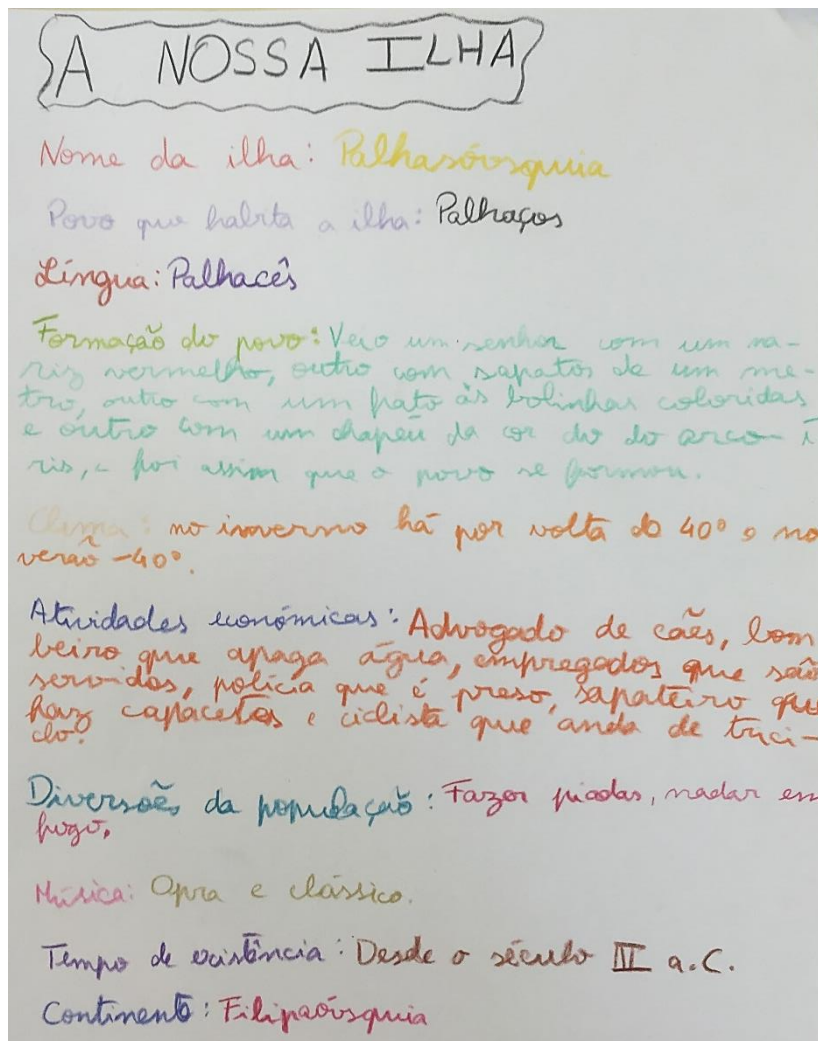 A NOSSA ILHA
Nome da ilha: Palhasóosquia
Povo que habita a ilha: Palhaços
Língua: Palhacês
Formação do povo: Veio um senhor com um na-
riz vermelho, outro com sapatos de um me-
tro, outro com um fato às bolinhas coloridas
e outro com um chapéu da cor do do arco-í
ris, e foi assim que o povo se formou.
Clima: no inverno há por volta do 40° e no
verão -40°.
Atividades económicas: Advogado de cães, bom
beiro que apaga água, empregados que são
servidos, polícia que é preso, sapateiro que
faz capacetes e ciclista que anda de trici-
clo.
Diversões da população: Fazer piadas, nadar em
fogo.
Música: Opra e clássico.
Tempo de existência: Desde o século III a.C.
Continente: Filipaóosquia